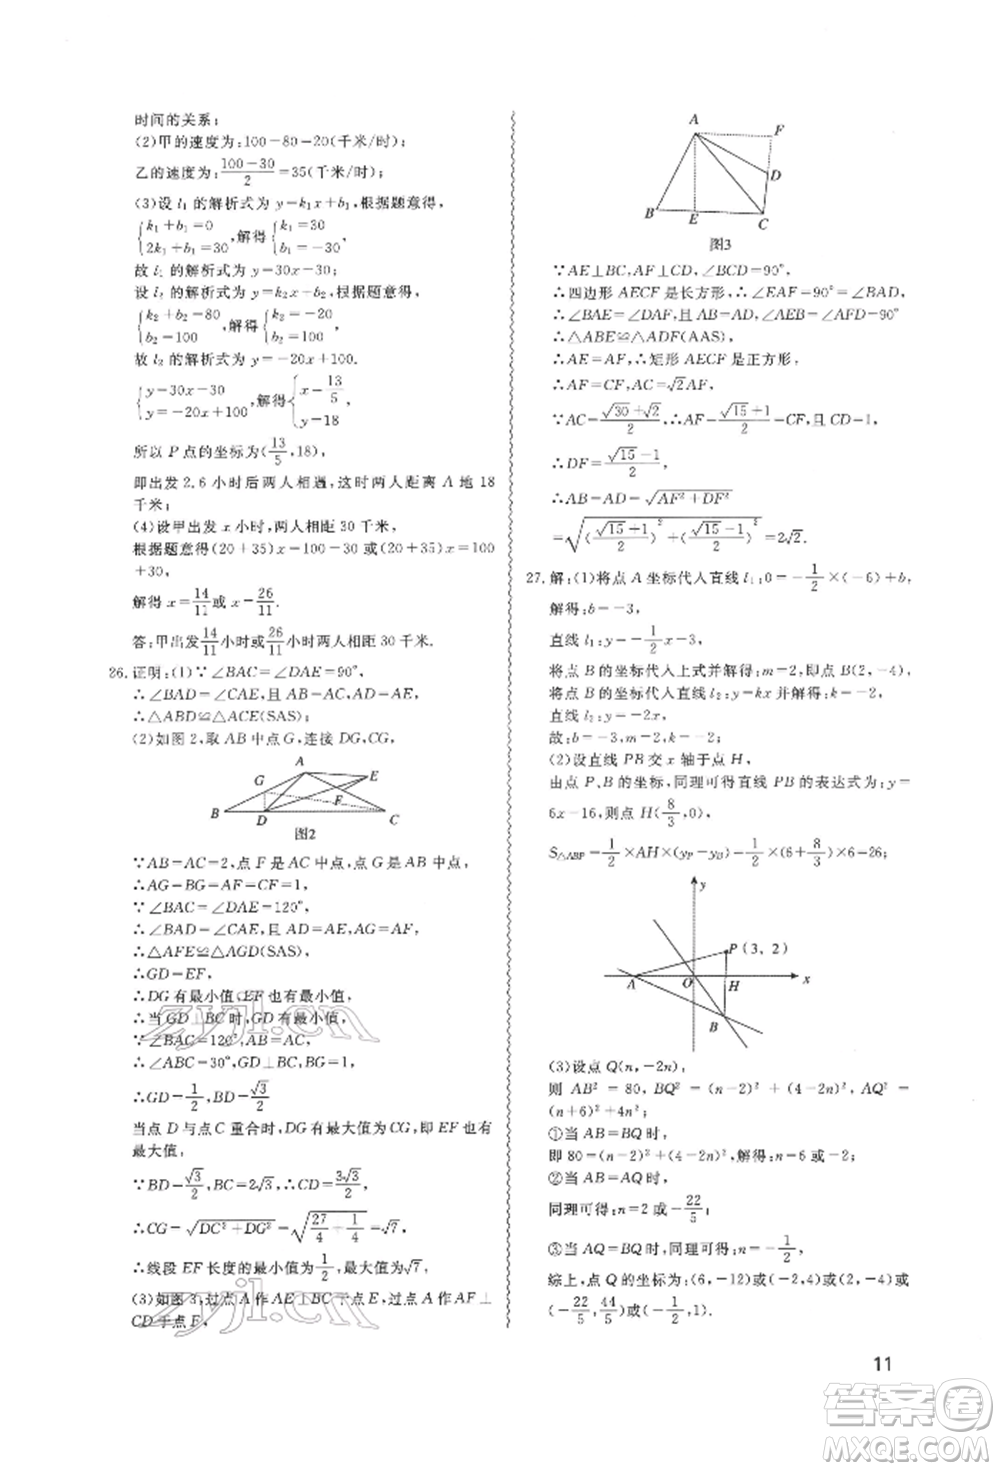 时间的关系;
(2)甲的速度为:100-80-20(千米/时);
乙的速度为:(100-30)/2=35(千米/时);
(3)设 l₁ 的解析式为 y=k₁x+b₁,根据题意得,
{k₁+b₁=0
2k₁+b₁=30 ,解得 {k₁=30
b₁=-30
故 l₁ 的解析式为 y=30x-30;
设 l₂ 的解析式为 y=k₂x+b₂,根据题意得,
{k₂+b₂-80
b₂-100 ,解得 {k₂--20
b₂=100
故 l₂ 的解析式为 y=-20x+100.
{y-30x-30
y=-20x+100 ,解得 {x-13/5,
y-18
所以 P 点的坐标为(13/5,18),
即出发 2.6 小时后两人相遇,这时两人距离 A 地 18
千米.
(4)设甲出发 x 小时,两人相距 30 千米,
根据题意得(20+35)x-100-30 或(20+35)x=100
+30,
解得 x=14/11 或 x-26/11.
答:甲出发 14/11 小时或 26/11 小时两人相距 30 千米.
26.证明:(1)∵∠BAC=∠DAE=90°,
∴∠BAD=∠CAE,
∴△ABD≌△ACE(SAS);
(2)如图 2,取 AB 中点 G,连接 DG,CG,
A
G
E
F
B
D
C
图2
∵AB=AC=2,点 F 是 AC 中点,点 G 是 AB 中点,
∴AG-BG=AF-CF-1,
∵∠BAC=∠DAE=120°,
∴∠BAD=∠CAE,且 AD=AE,AG=AF,
∴△AFE≌△AGD(SAS),
∴GD-EF,
∴DG 有最小值,EF 也有最小值,
∴当 GD⊥BC 时,GD 有最小值,
∵∠BAC=120°,AB=AC,
∴∠ABC=30°,GD⊥BC,BG=1,
∴GD-1/2,BD-√3/2
当点 D 与点 C 重合时,DG 有最大值为 CG,即 EF 也有
最大值,
∵BD-√3/2,BC=2√3,∴CD=3√3/2,
∴CG-√(DC²+DG²)=√(27/4+1/4)=√7,
∴线段 EF 长度的最小值为 1/2,最大值为√7,
(3)如图 3,过点 A 作 AE⊥BC 于点 E,过点 A 作 AF⊥
CD 于点 F,
A
F
D
B
E
C
图3
∵AE⊥BC,AF⊥CD,∠BCD=90°,
∴四边形 AECF 是长方形,∴∠EAF-90°=∠BAD,
∴∠BAE=∠DAF,且 AB=AD,∠AEB=∠AFD-90°
∴△ABE≌△ADF(AAS)
∴AE=AF,∴矩形 AECF 是正方形,
∴AF=CF,AC=√2AF,
∵AC=(√30+√2)/2,∴AF-(√15+1)/2-CF,且 CD-1,
∴DF=(√15-1)/2,
∴AB=AD-√(AF²+DF²)
=√(((√15+1)/2)²+((√15-1)/2)²)=2√2.
27.解:(1)将点 A 坐标代入直线 l₁:0=-1/2×(-6)+b,
解得:b=-3,
直线 l₁:y=-1/2x-3,
将点 B 的坐标代入上式并解得:m=2,即点 B(2,-4),
将点 B 的坐标代入直线 l₂:y=kx 并解得:k=-2,
直线 l₂:y=-2x,
故:b=-3,m=2,k=-2;
(2)设直线 PB 交 x 轴于点 H,
由点 P、B 的坐标,同理可得直线 PB 的表达式为:y=
6x-16,则点 H(8/3,0),
S△ABP=1/2×AH×(yP-yB)-1/2×(6+8/3)×6-26;
y
P(3, 2)
A
O
H
x
B
(3)设点 Q(n,-2n),
则 AB²=80,BQ²=(n-2)²+(4-2n)²,AQ²=
(n+6)²+4n²;
①当 AB=BQ 时,
即 80=(n-2)²+(4-2n)²,解得:n-6 或-2;
②当 AB=AQ 时,
同理可得:n=2 或-22/5;
③当 AQ=BQ 时,同理可得 n=-1/2,
综上,点 Q 的坐标为:(6,-12)或(-2,4)或(2,-4)或
(-22/5,44/5)或(-1/2,1).
11
zyjl.cn
zyjl.cn
答案圈
MXQE.COM